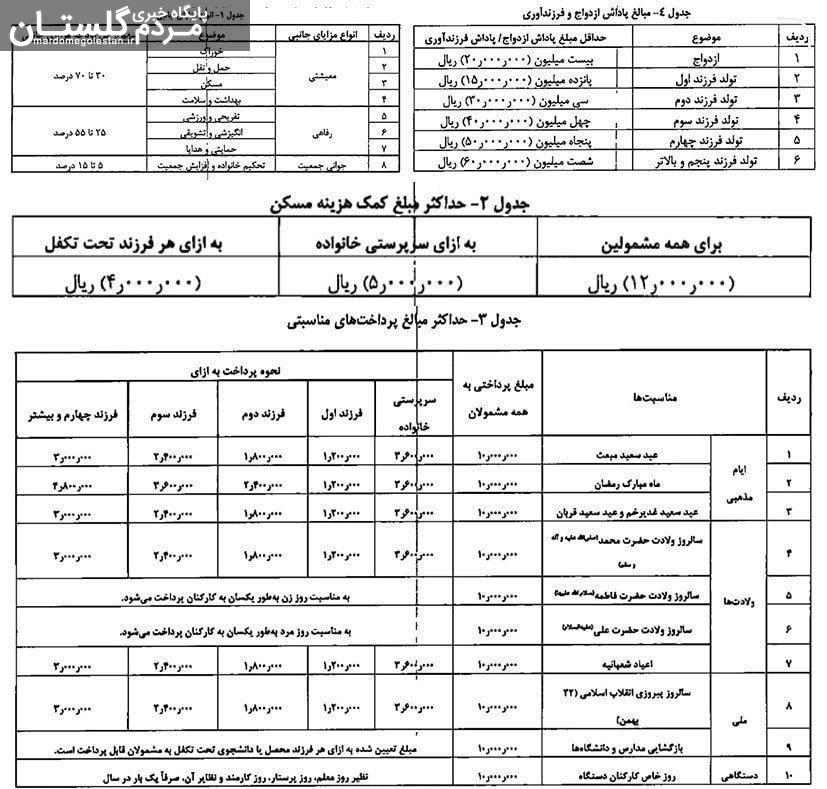 پایگاه خبری
مردم گلستان
mardomegolestan.ir
جدول ۴- مبالغ پاداش ازدواج و فرزندآوری
ردیف موضوع حداقل مبلغ پاداش ازدواج/ پاداش فرزندآوری
۱ ازدواج بیست میلیون (۲۰٫۰۰۰٫۰۰۰) ریال
۲ تولد فرزند اول پانزده میلیون (۱۵٫۰۰۰٫۰۰۰) ریال
۳ تولد فرزند دوم سی میلیون (۳۰٫۰۰۰٫۰۰۰) ریال
۴ تولد فرزند سوم چهل میلیون (۴۰٫۰۰۰٫۰۰۰) ریال
۵ تولد فرزند چهارم پنجاه میلیون (۵۰٫۰۰۰٫۰۰۰) ریال
۶ تولد فرزند پنجم و بالاتر شصت میلیون (۶۰٫۰۰۰٫۰۰۰) ریال
جدول ۱-
ردیف انواع مزایای جانبی موضوع
۱ معیشتی خوراک ۳۰ تا ۷۰ درصد
۲ حمل و نقل
۳ مسکن
۴ بهداشت و سلامت
۵ رفاهی تفریحی و ورزشی ۲۵ تا ۵۵ درصد
۶ انگیزشی و تشویقی
۷ حمایتی و هدایا
۸ جوانی جمعیت تحکیم خانواده و افزایش جمعیت ۵ تا ۱۵ درصد
جدول ۲- حداکثر مبلغ کمک هزینه مسکن
برای همه مشمولین به ازای سرپرستی خانواده به ازای هر فرزند تحت تکفل
(۱۲٫۰۰۰٫۰۰۰) ریال (۵٫۰۰۰٫۰۰۰) ریال (۴٫۰۰۰٫۰۰۰) ریال
جدول ۳- حداکثر مبالغ پرداخت‌های مناسبتی
ردیف مناسبت‌ها مبلغ پرداختی به همه مشمولان نحوه پرداخت به ازای
سرپرستی خانواده فرزند اول فرزند دوم فرزند سوم فرزند چهارم و بیشتر
ایام مذهبی
۱ عید سعید مبعث ۱۰٫۰۰۰٫۰۰۰ ۳٫۶۰۰٫۰۰۰ ۱٫۲۰۰٫۰۰۰ ۱٫۸۰۰٫۰۰۰ ۲٫۴۰۰٫۰۰۰ ۳٫۰۰۰٫۰۰۰
۲ ماه مبارک رمضان ۱۰٫۰۰۰٫۰۰۰ ۳٫۶۰۰٫۰۰۰ ۱٫۲۰۰٫۰۰۰ ۲٫۴۰۰٫۰۰۰ ۳٫۶۰۰٫۰۰۰ ۴٫۸۰۰٫۰۰۰
۳ عید سعید غدیرخم و عید سعید قربان ۱۰٫۰۰۰٫۰۰۰ ۳٫۶۰۰٫۰۰۰ ۱٫۲۰۰٫۰۰۰ ۱٫۸۰۰٫۰۰۰ ۲٫۴۰۰٫۰۰۰ ۳٫۰۰۰٫۰۰۰
ولادت‌ها
۴ سالروز ولادت حضرت محمد (صلی‌الله علیه و آله و سلم) ۱۰٫۰۰۰٫۰۰۰ ۳٫۶۰۰٫۰۰۰ ۱٫۲۰۰٫۰۰۰ ۱٫۸۰۰٫۰۰۰ ۲٫۴۰۰٫۰۰۰ ۳٫۰۰۰٫۰۰۰
۵ سالروز ولادت حضرت فاطمه (سلام‌الله علیها) ۱۰٫۰۰۰٫۰۰۰ به مناسبت روز زن به‌طور یکسان به کارکنان پرداخت می‌شود.
۶ سالروز ولادت حضرت علی (علیه‌السلام) ۱۰٫۰۰۰٫۰۰۰ به مناسبت روز مرد به‌طور یکسان به کارکنان پرداخت می‌شود.
۷ اعیاد شعبانیه ۱۰٫۰۰۰٫۰۰۰ ۳٫۶۰۰٫۰۰۰ ۱٫۲۰۰٫۰۰۰ ۱٫۸۰۰٫۰۰۰ ۲٫۴۰۰٫۰۰۰ ۳٫۰۰۰٫۰۰۰
ملی
۸ سالروز پیروزی انقلاب اسلامی (۲۲ بهمن) ۱۰٫۰۰۰٫۰۰۰ ۳٫۶۰۰٫۰۰۰ ۱٫۲۰۰٫۰۰۰ ۱٫۸۰۰٫۰۰۰ ۲٫۴۰۰٫۰۰۰ ۳٫۰۰۰٫۰۰۰
۹ بازگشایی مدارس و دانشگاه‌ها ۱۰٫۰۰۰٫۰۰۰ مبلغ تعیین شده به ازای هر فرزند محصل یا دانشجوی تحت تکفل به مشمولان قابل پرداخت است.
۱۰ دستگاهی روز خاص کارکنان دستگاه ۱۰٫۰۰۰٫۰۰۰ نظیر روز معلم، روز پرستار، روز کارمند و نظایر آن، صرفاً یک بار در سال